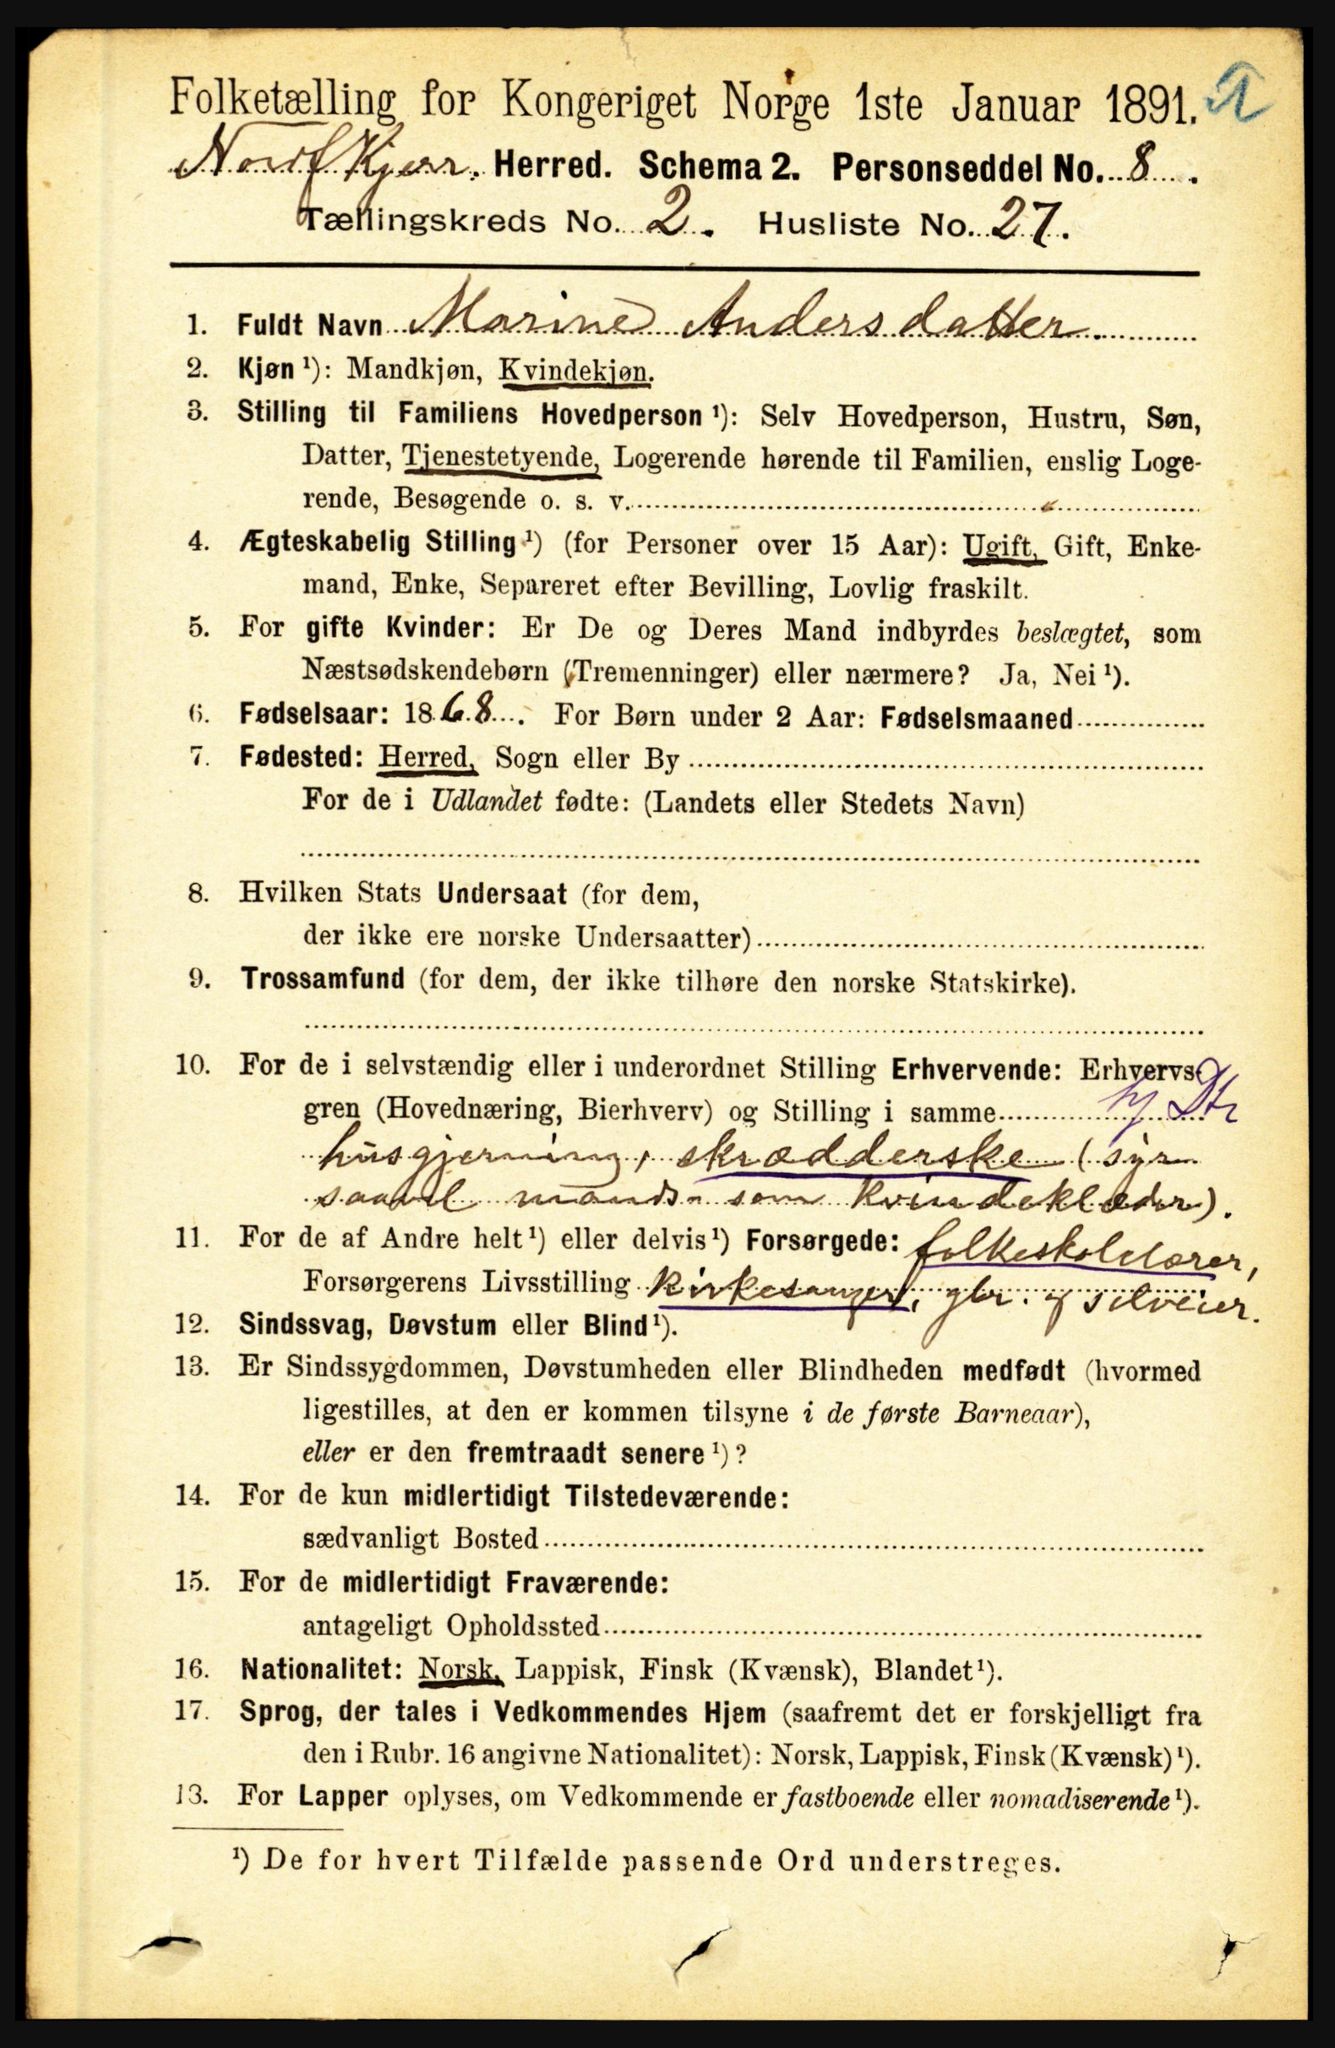 Folketælling for Kongeriget Norge 1ste Januar 1891.
Herred. Schema 2. Personseddel No. 8.
Tællingskreds No. 2. Husliste No. 27.
1. Fuldt Navn Marine Andersdatter.
2. Kjøn ¹): Mandkjøn, Kvindekjøn.
3. Stilling til Familiens Hovedperson ¹): Selv Hovedperson, Hustru, Søn,
Datter, Tjenestetyende, Logerende hørende til Familien, enslig Loge-
rende, Besøgende o. s. v.
4. Ægteskabelig Stilling ¹) (for Personer over 15 Aar): Ugift, Gift, Enke-
mand, Enke, Separeret efter Bevilling, Lovlig fraskilt.
5. For gifte Kvinder: Er De og Deres Mand indbyrdes beslægtet, som
Næstsødskendebørn (Tremenninger) eller nærmere? Ja, Nei ¹).
6. Fødselsaar: 1868. For Børn under 2 Aar: Fødselsmaaned
7. Fødested: Herred, Sogn eller By
For de i Udlandet fødte: (Landets eller Stedets Navn)
8. Hvilken Stats Undersaat (for dem,
der ikke ere norske Undersaatter)
9. Trossamfund (for dem, der ikke tilhøre den norske Statskirke).
10. For de i selvstændig eller i underordnet Stilling Erhvervende: Erhvervs-
gren (Hovednæring, Bierhverv) og Stilling i samme
husgjerning, skrædderske (syr
saavel mands- som kvindeklæder).
11. For de af Andre helt ¹) eller delvis ¹) Forsørgede: folkeskolelærer,
Forsørgerens Livsstilling kirkesanger, gbr. og selveier.
12. Sindssvag, Døvstum eller Blind ¹).
13. Er Sindssygdommen, Døvstumheden eller Blindheden medfødt (hvormed
ligestilles, at den er kommen tilsyne i de første Barneaar),
eller er den fremtraadt senere ¹)?
14. For de kun midlertidigt Tilstedeværende:
sædvanligt Bosted
15. For de midlertidigt Fraværende:
antageligt Opholdssted
16. Nationalitet: Norsk, Lappisk, Finsk (Kvænsk), Blandet ¹).
17. Sprog, der tales i Vedkommendes Hjem (saafremt det er forskjelligt fra
den i Rubr. 16 angivne Nationalitet): Norsk, Lappisk, Finsk (Kvænsk) ¹).
13. For Lapper oplyses, om Vedkommende er fastboende eller nomadiserende ¹).
¹) De for hvert Tilfælde passende Ord understreges.